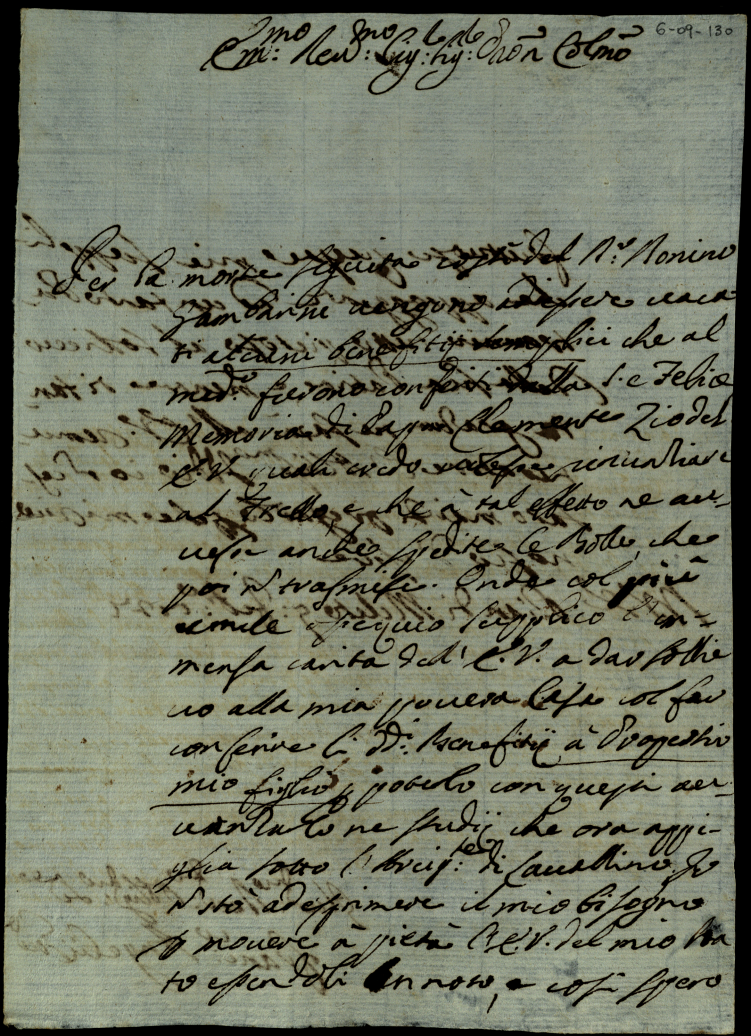 6-09-130
Em:mo Rev:mo Sig:r Sig:r Pron Colmo
Per la morte seguita costà del R.o Ronino
Gambarini vengono ad essere vaca
ti alcuni benefitij semplici che al
med.o furono conferiti dalla S. e Felice
Memoria di Papa Clemente Zio del
E.V. quali credo volesse rinuntiare
al Fr̃ello, e che à tal effetto ne av-
vesse anche spedite le Bolle, che
poi ñ trasmise. Onde col più
umile ossequio supplico l' im-
mensa carità dell' E.V. a dar sollie
vo alla mia povera Casa col far
conferire li dd.i Benefitij à Prospero
mio figlio, p poterlo con questi
ne studij che ora appi-
glia sotto l' Arcip.te di Cavallino, Io
ñ stò ad esprimere il mio bisogno
p movere à pietà l' E.V. del mio sta
to essendoli noto, e così spero